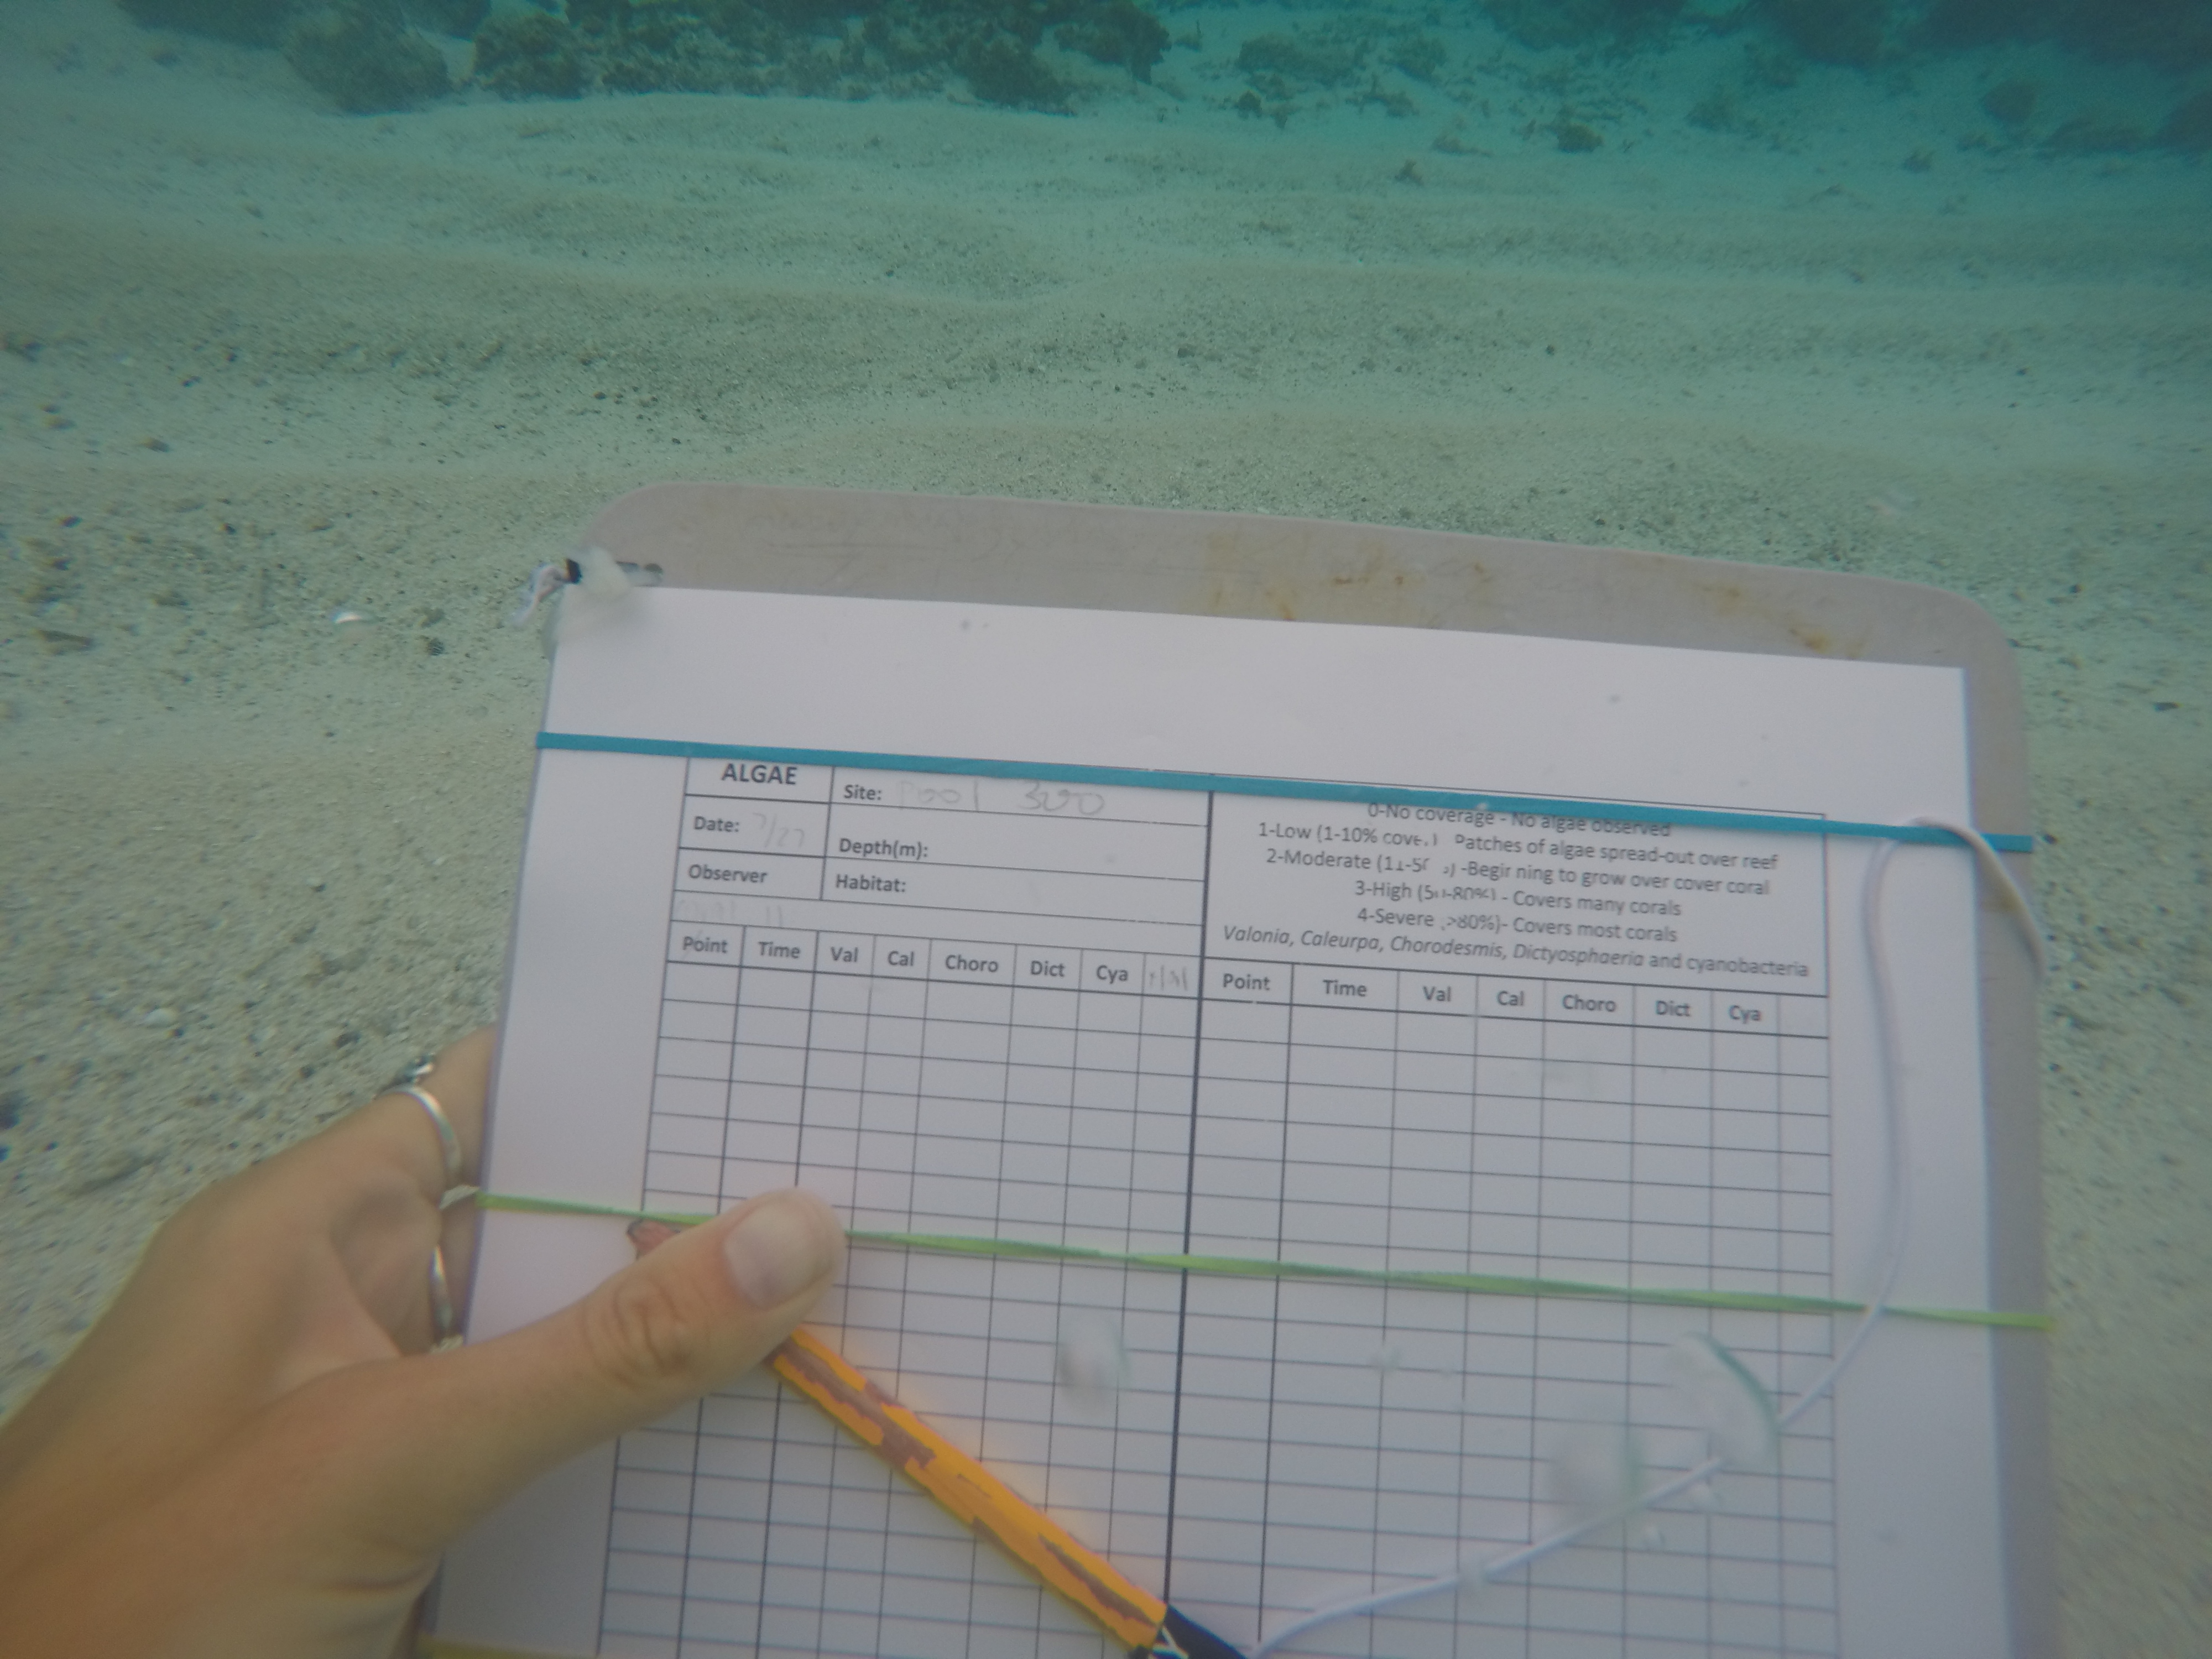 ALGAE
Site: Pool 300
Date: 7/27
Depth(m):
Observer
Habitat:
0-No coverage - No algae observed
1-Low (1-10% cove.) Patches of algae spread-out over reef
2-Moderate (11-5 ) -Begin ning to grow over cover coral
3-High (50-80%) - Covers many corals
4-Severe (>80%)- Covers most corals
Valonia, Caleurpa, Chorodesmis, Dictyosphaeria and cyanobacteria
Point Time Val Cal Choro Dict Cya
Point Time Val Cal Choro Dict Cya